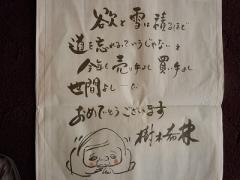 欲と雪は積るほど
道を忘れるっていうじゃない
今年も売り手よし買い手よし
世間よし
おめでとうございます
樹木希林